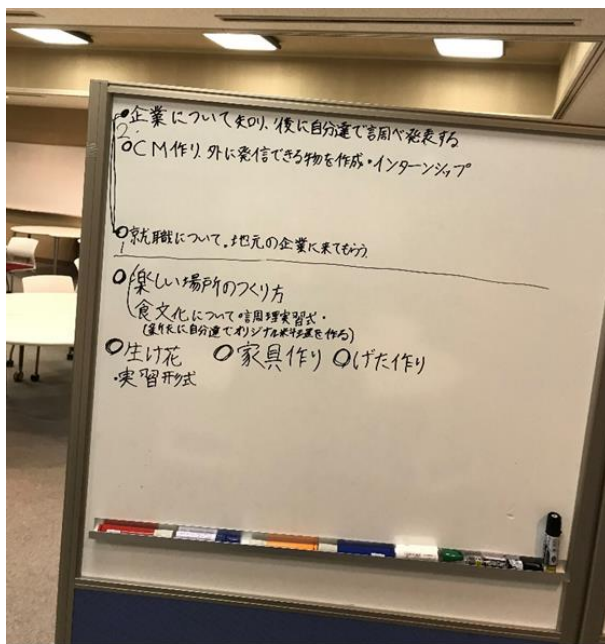 企業について知り、後に自分達で調べ発表する
2.
CM作り、外に発信できる物を作成・インターンシップ
就職について、地元の企業に来てもらう
1
楽しい場所のつくり方
食文化について・調理実習式・
(に自分達でオリジナルを作る)
生け花 家具作り げた作り
・実習形式